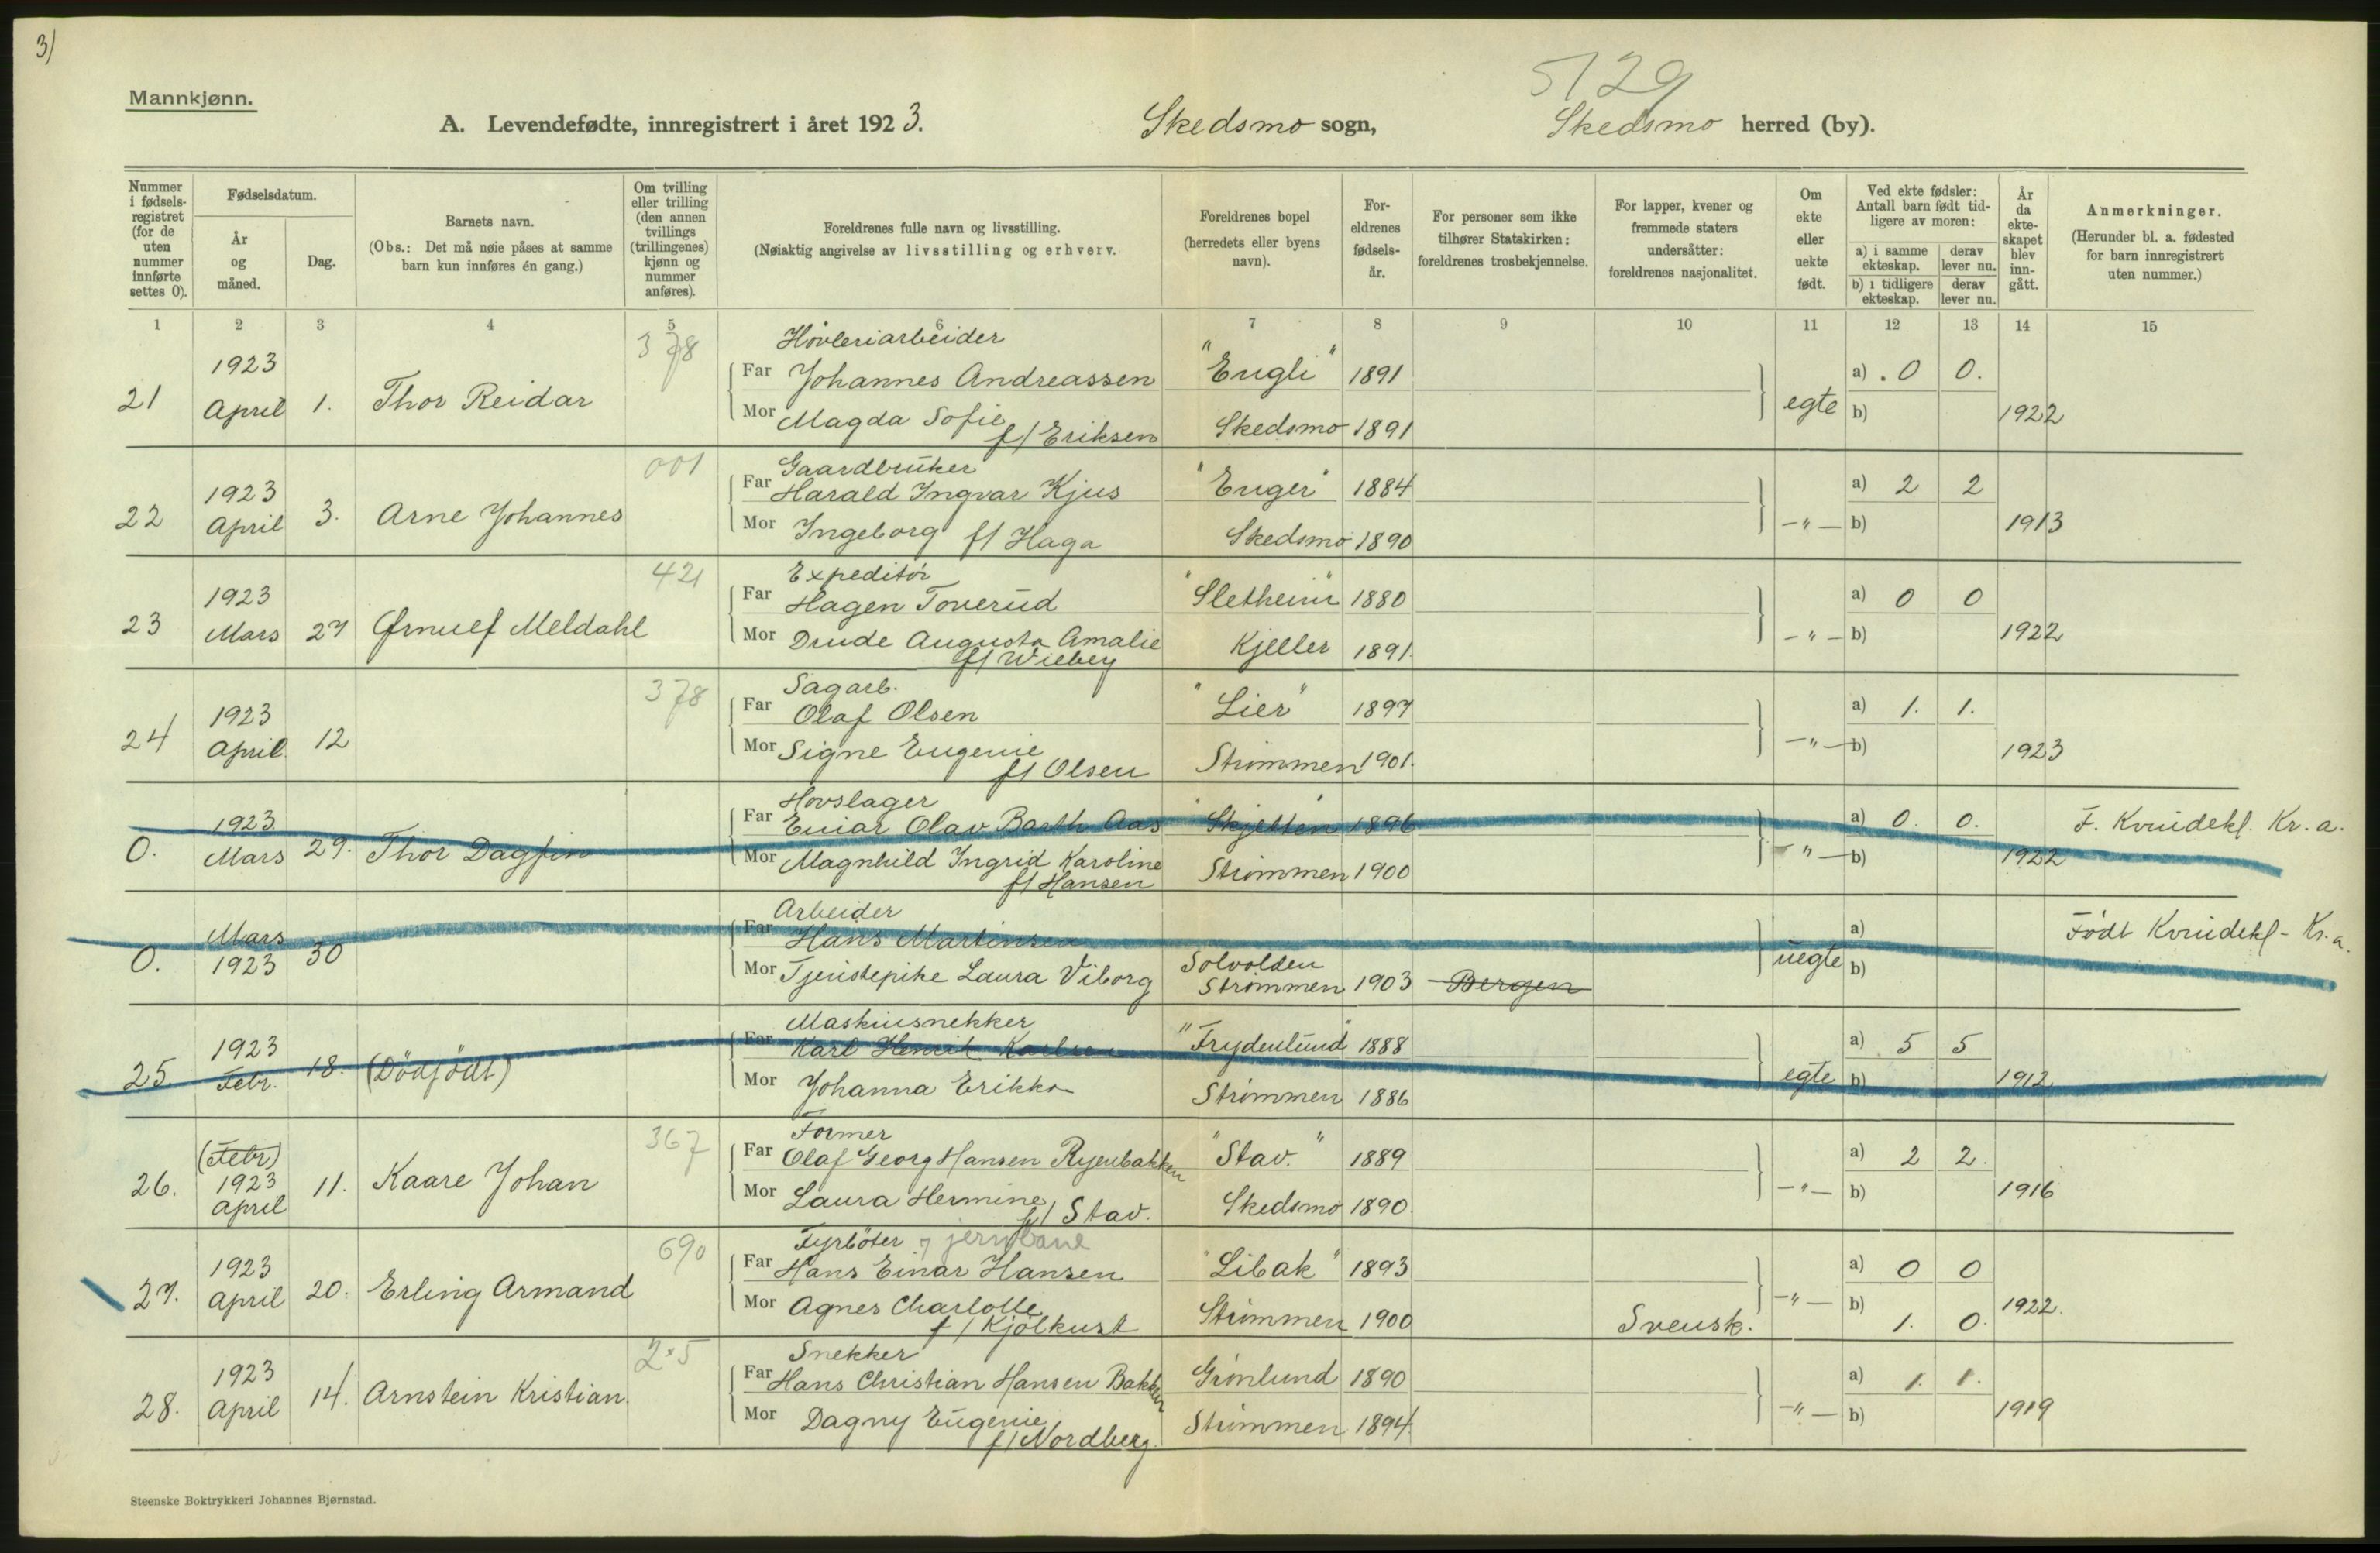 3)
Mannkjønn.
5129
A. Levendefødte, innregistrert i året 1923. Skedsmo sogn, Skedsmo herred (by).
Nummer i fødsels-registret (for de uten nummer innførte settes 0).
Fødselsdatum.
År og måned.
Dag.
Barnets navn.
(Obs.: Det må nøie påses at samme barn kun innføres én gang.)
Om tvilling eller trilling (den annen tvillings (trillingenes) kjønn og nummer anføres).
Foreldrenes fulle navn og livsstilling.
(Nøiaktig angivelse av livsstilling og erhverv.
Foreldrenes bopel (herredets eller byens navn).
For-eldrenes fødsels-år.
For personer som ikke tilhører Statskirken: foreldrenes trosbekjennelse.
For lapper, kvener og fremmede staters undersåtter: foreldrenes nasjonalitet.
Om ekte eller uekte født.
Ved ekte fødsler: Antall barn født tid-ligere av moren:
a) i samme ekteskap. derav lever nu.
b) i tidligere ekteskap. derav lever nu.
År da ekte-skapet blev inn-gått.
Anmerkninger.
(Herunder bl. a. fødested for barn innregistrert uten nummer.)
1 2 3 4 5 6 7 8 9 10 11 12 13 14 15
378 Høvleriarbeider
1923 Far Johannes Andreassen "Engli" 1891 a) 0 0.
21 April 1. Thor Reidar egte
Mor Magda Sofie f/ Eriksen Skedsmo 1891 b) 1922
001 Gaardbruker
1923 Far Harald Ingvar Kjus "Enger" 1884 a) 2 2
22 April 3. Arne Johannes -"-
Mor Ingeborg f/ Haga Skedsmo 1890 b) 1913
421 Expeditør
1923 Far Hagen Toverud "Sletheim" 1880 a) 0 0
23 Mars 27 Ørnulf Meldahl -"-
Mor Drude Augusta Amalie f/ Wiebey Kjeller 1891. b) 1922
378 Sagarb.
1923 Far Olaf Olsen "Lier" 1897 a) 1. 1.
24 April. 12 -"-
Mor Signe Eugenie f/ Olsen Strømmen 1901. b) 1923
Hovslager
1923 Far Einar Olav Barth Aas "Skjetten" 1896 a) 0. 0. F. Kvindekl. Kr.a.
0. Mars 29. Thor Dagfin -"-
Mor Magnhild Ingrid Karoline f/ Hansen Strømmen 1900 b) 1922
Arbeider
Mars Far Hans Martinsen a) Født Kvindekl - Kr.a.
0. 1923 30 uegte
Mor Tjenstepike Laura Viborg Solvolden Strømmen 1903 Bergen b)
Maskinsnekker
1923 Far Karl Henrik Karlsen "Frydenlund" 1888 a) 5 5
25 Febr. 18. (Dødfødt) egte
Mor Johanna Erikka Strømmen 1886 b) 1912
367 Former
(Febr) Far Olaf Georg Hansen Ryenbakken "Stav." 1889 a) 2 2.
26. 1923 April 11. Kaare Johan -"-
Mor Laura Hermine f/ Stav. Skedsmo 1890 b) 1916
690 Fyrbøter jernbane
1923 Far Hans Einar Hansen "Libak" 1893 a) 0 0
27. April 20. Erling Armand -"-
Mor Agnes Charlotte f/ Kjølkust Strømmen 1900 Svensk. b) 1. 0. 1922.
Snekker
1923 Far Hans Christian Hansen Bakken Grønlund 1890 a) 1. 1.
28. April 14. Arnstein Kristian. -"-
Mor Dagny Eugenie f/ Nordberg. Strømmen 1894. b) 1919
Steenske Boktrykkeri Johannes Bjørnstad.